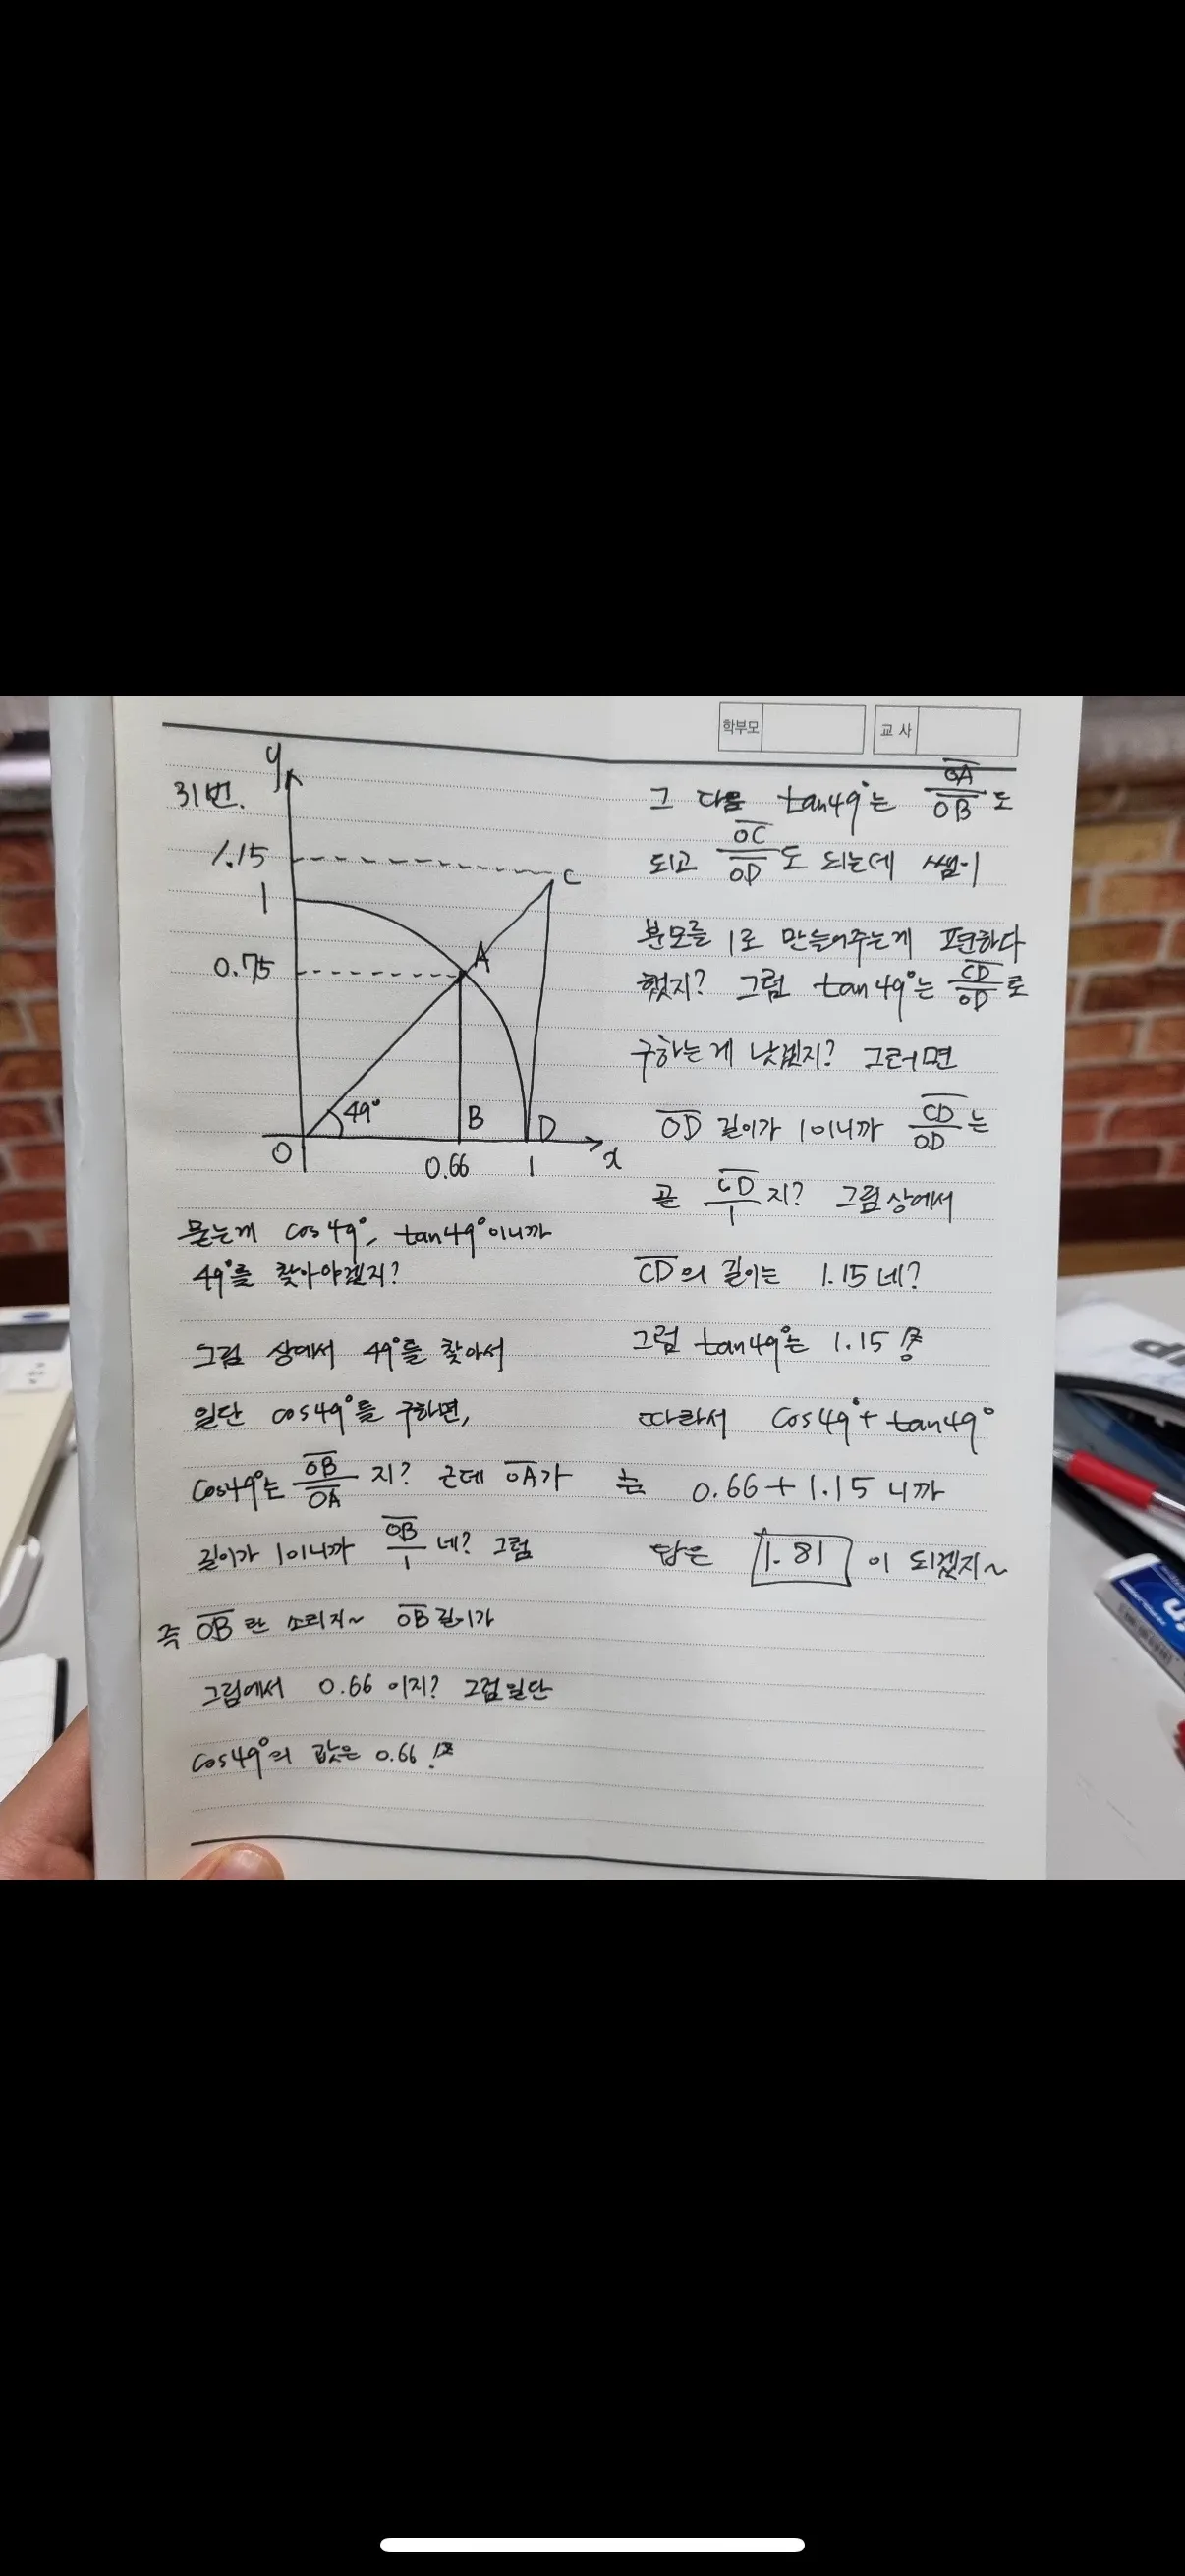 학부모
교사
31번.
y
1.15
1
0.75
C
A
49°
B
D
O
0.66
1
x
묻는게 cos49°, tan49°이니까
49°를 찾아야겠지?
그림 상에서 49°를 찾아서
일단 cos49°를 구하면,
cos49°는 OB/OA 지? 근데 OA가
길이가 1이니까 OB/1 네? 그럼
즉 OB란 소리지~ OB길이가
그림에서 0.66 이지? 그럼일단
cos49°의 값은 0.66 !
그 다음 tan49°는 OA/OB도
되고 OC/OD도 되는데 쌤이
분모를 1로 만들어주는게 편하다
했지? 그럼 tan49°는 CD/OD로
구하는게 낫겠지? 그러면
OD 길이가 1이니까 CD/OD는
곧 CD/1 지? 그림상에서
CD의 길이는 1.15네?
그럼 tan49°는 1.15
따라서 cos49°+tan49°
는 0.66+1.15 니까
답은 1.81 이 되겠지~